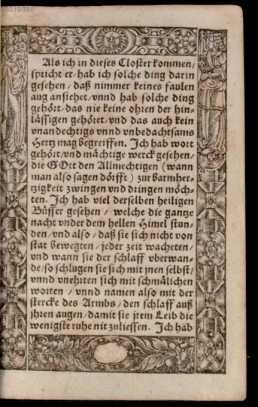 Als ich in dieses Closter kommen/
spricht er/hab ich solche ding darin
gesehen/daß nimmer keines faulen
aug ansihet/vnnd hab solche ding
gehört/das nie keine ohren der hin-
lässigen gehört/vnd das auch kein
vnandechtigs vnnd vnbedachtsams
Hertz mag begreiffen. Ich hab wort
gehört/vnd mächtige werck gesehen/
die GOtt den Allmechtigen (wann
man also sagen dörfft) zur barmher-
tzigkeit zwingen vnd dringen möch-
ten. Ich hab viel derselben heiligen
Büsser gesehen/welche die gantze
nacht vnder dem hellen Himel stun-
den/vnd also/daß sie sich nicht von
stat bewegten/jeder zeit wacheten/
vnd wann sie der schlaff vberwan-
de/so schlugen sie sich mit jnen selbst/
vnnd vnehrten sich mit schmälichen
worten/vnnd namen also mit der
stercke des Armbs/den schlaff auß
jhren augen/damit sie jrem Leib die
wenigste ruhe nit zuliessen. Ich hab